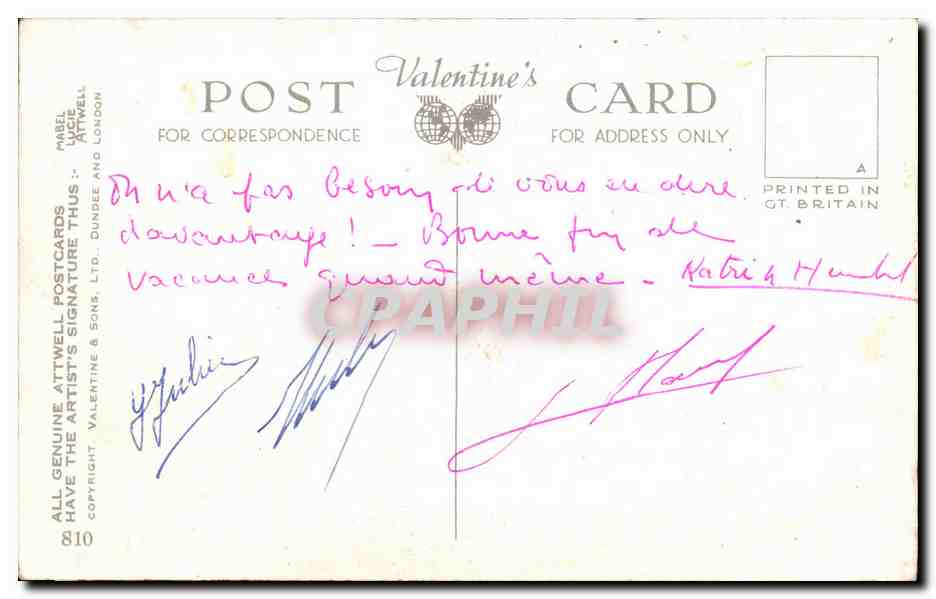 Valentine's
POST CARD
FOR CORRESPONDENCE
FOR ADDRESS ONLY
A
PRINTED IN
GT. BRITAIN
On n'a pas besoin de vous en dire
davantage! - Bonne fin de
vacances quand même - Katrin
CPAPHIL
Y Julien
ALL GENUINE ATTWELL POSTCARDS
HAVE THE ARTIST'S SIGNATURE THUS :-
MABEL
LUCIE
ATTWELL
COPYRIGHT. VALENTINE & SONS, LTD., DUNDEE AND LONDON
810